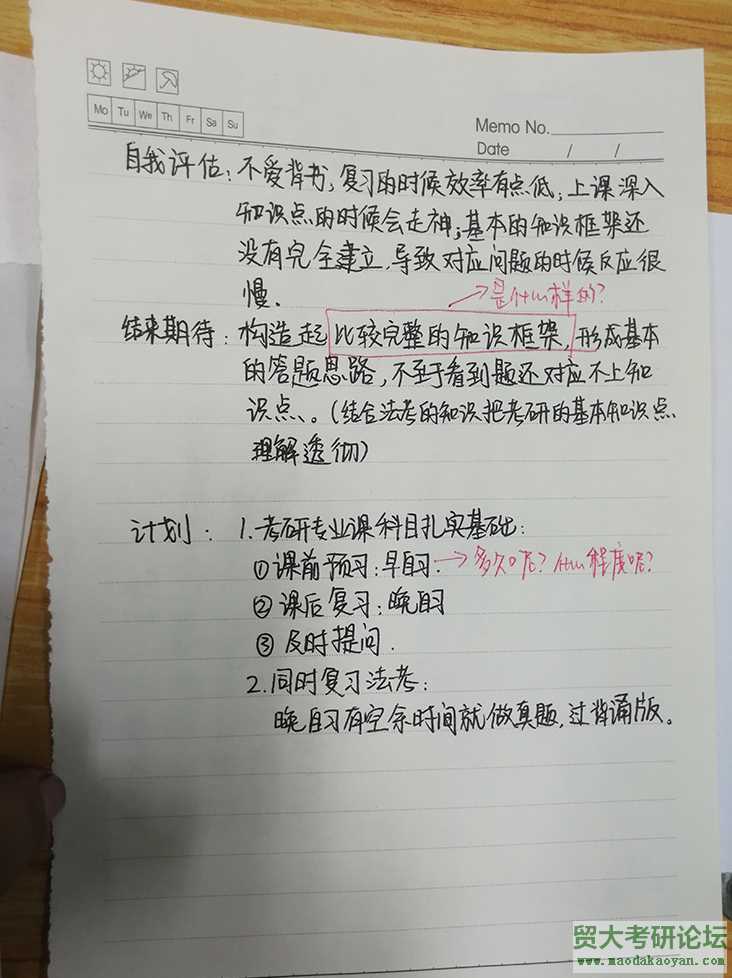 Mo Tu We Th Fr Sa Su
Memo No.
Date / /
自我评估：不爱背书，复习的时候效率有点低；上课深入
知识点的时候会走神；基本的知识框架还
没有完全建立，导致对应问题的时候反应很
慢．
→是什么样的？
结束期待：构造起比较完整的知识框架，形成基本
的答题思路，不至于看到题还对应不上知
识点、。（结合法考的知识把考研的基本知识点
理解透彻）
计划：1.考研专业课科目扎实基础：
①课前预习：早自习．→多久呢？什么程度呢？
②课后复习：晚自习
③及时提问．
2.同时复习法考：
晚自习有空余时间就做真题，过背诵版。
贸大考研论坛
www.maodakaoyan.com